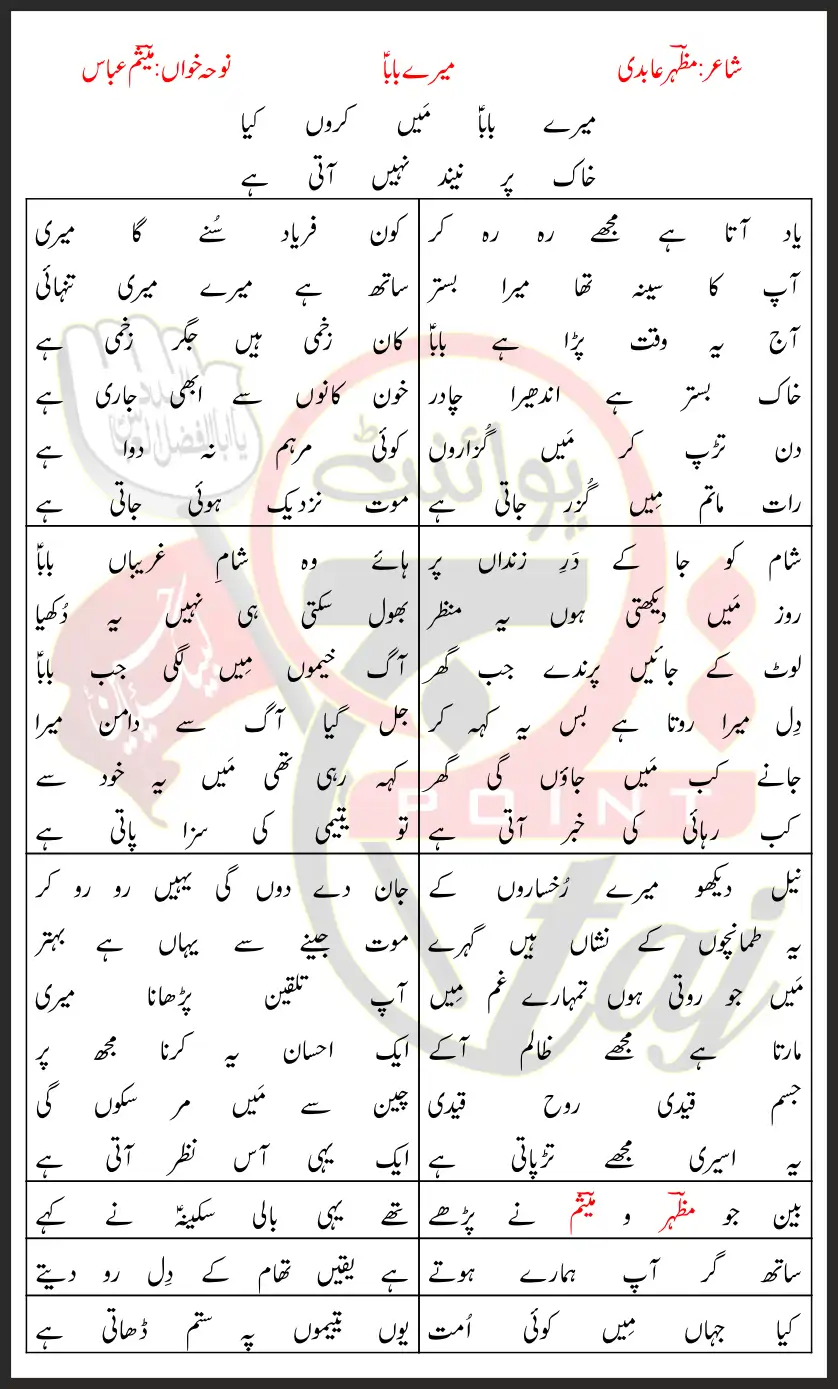 شاعر: مظہرؔ عابدی میرے باباؑ نوحہ خواں: میثمؔ عباس
میرے باباؑ مَیں کروں کیا
خاک پر نیند نہیں آتی ہے
یاد آتا ہے مجھے رہ رہ کر
آپ کا سینہ تھا میرا بستر
آج یہ وقت پڑا ہے باباؑ
خاک بستر ہے اندھیرا چادر
دن تڑپ کر مَیں گُزاروں
رات ماتم مِیں گُزر جاتی ہے
کون فریاد سُنے گا میری
ساتھ ہے میرے میری تنہائی
کان زخمی ہیں جگر زخمی ہے
خون کانوں سے ابھی جاری ہے
کوئی مرہم نہ دوا ہے
موت نزدیک ہوئی جاتی ہے
شام کو جا کے دَرِ زنداں پر
روز مَیں دیکھتی ہوں یہ منظر
لوٹ کے جائیں پرندے جب گھر
دِل میرا روتا ہے بس یہ کہہ کر
جانے کب مَیں جاؤں گی گھر
کب رہائی کی خبر آتی ہے
ہائے وہ شامِ غریباں باباؑ
بھول سکتی ہی نہیں یہ دُکھیا
آگ خیموں مِیں لگی جب باباؑ
جل گیا آگ سے دامن میرا
کہہ رہی تھی مَیں یہ خود سے
تو یتیمی کی سزا پاتی ہے
نیل دیکھو میرے رُخساروں کے
یہ طمانچوں کے نشاں ہیں گہرے
مَیں جو روتی ہوں تمہارے غم مِیں
مارتا ہے مجھے ظالم آکے
جسم قیدی روح قیدی
یہ اسیری مجھے تڑپاتی ہے
جان دے دوں گی یہیں رو رو کر
موت جینے سے یہاں ہے بہتر
آپ تلقین پڑھانا میری
ایک احسان یہ کرنا مجھ پر
چین سے مَیں مر سکوں گی
ایک یہی آس نظر آتی ہے
بین جو مظہرؔ و میثمؔ نے پڑھے
تھے یہی بالی سکینہؑ نے کہے
ساتھ گر آپ ہمارے ہوتے
ہے یقیں تھام کے دِل رو دیتے
کیا جہاں مِیں کوئی اُمت
یوں یتیموں پہ ستم ڈھاتی ہے
پوائنٹ
POINT
taj